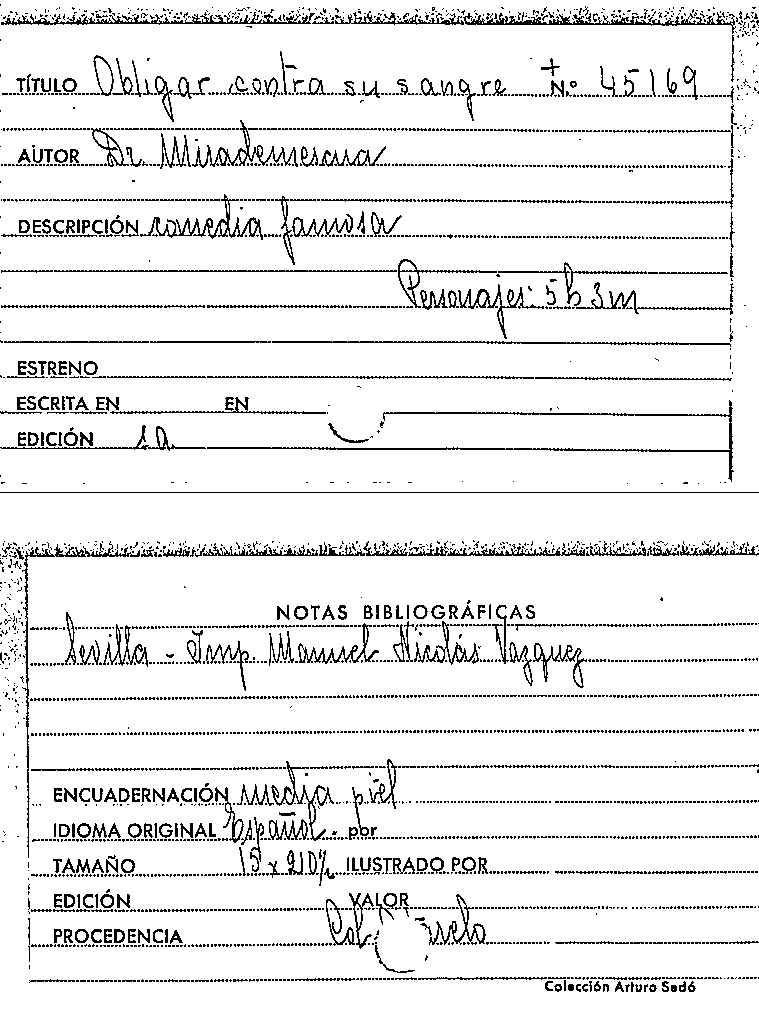 TÍTULO Obligar contra su sangre N.º 45169
AUTOR Dr. Mirademescua
DESCRIPCIÓN comedia famosa
Personajes: 5 h 3 m
ESTRENO
ESCRITA EN EN
EDICIÓN 1a
NOTAS BIBLIOGRÁFICAS
Sevilla - Imp. Manuel Nicolás Vázquez
ENCUADERNACIÓN media piel
IDIOMA ORIGINAL Español. por
TAMAÑO ILUSTRADO POR
EDICIÓN VALOR
PROCEDENCIA
Colección Arturo Sedó